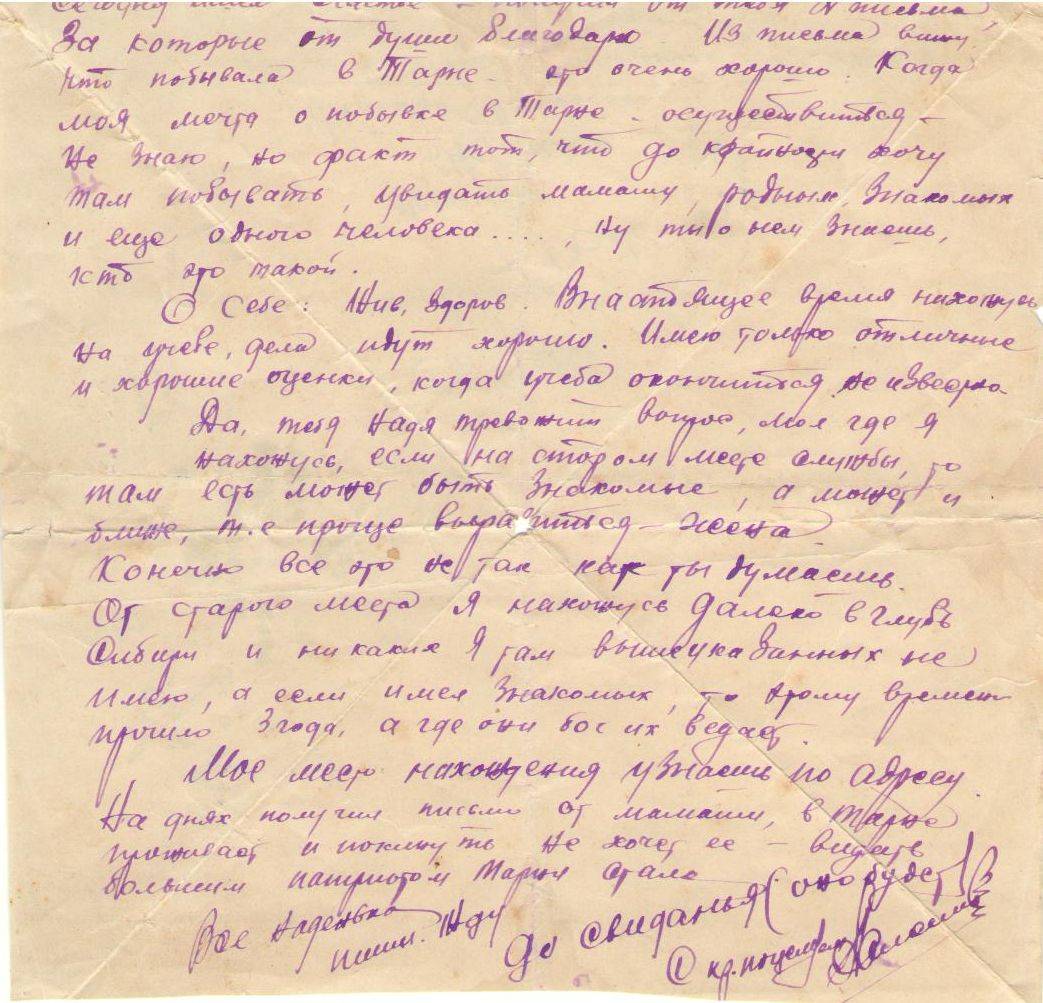 Сегодня от тебя письма,
За которые от души благодарю. Из письма вижу
что побывала в Тарже. это очень хорошо. Когда
моя мечта о побывке в Тарже осуществиться –
не знаю, но факт тот, что до крайности хочу
там побывать, увидать мамашу, родных, знакомых
и еще одного человека ...., ну ты о нем знаешь,
кто это такой.
О себе: Жив, здоров. Внастоящее время нахожусь
на учебе, дела идут хорошо. Имею только отличные
и хорошие оценки, когда учеба окончиться не известно.
Да, тебя Надя тревожит вопрос, мол где я
нахожусь, если на старом месте службы, то
там есть может быть знакомые, а может и
ближе, т.е проще выразиться – жена.
Конечно все это не так как ты думаешь.
От старого места я нахожусь далеко вглубь
Сибири и никаких я там вышеуказанных не
имею, а если имел знакомых, то этому времени
прошло 3 года, а где они бог их ведает.
Мое место нахождения узнаешь по адресу.
На днях получил письмо от мамаши, в Тарже
проживает и покинуть не хочет ее – видать
большим патриотом Таржи стала
Все Наденька
пиши. Жду
До свиданья (оно будет)
С кр. поцелуем